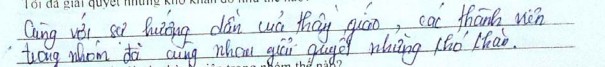 Tôi đã giải quyết những khó khăn đó như thế nào?
Cùng với sự hướng dẫn của thầy giáo, các thành viên
trong nhóm đã cùng nhau giải quyết những khó khăn.